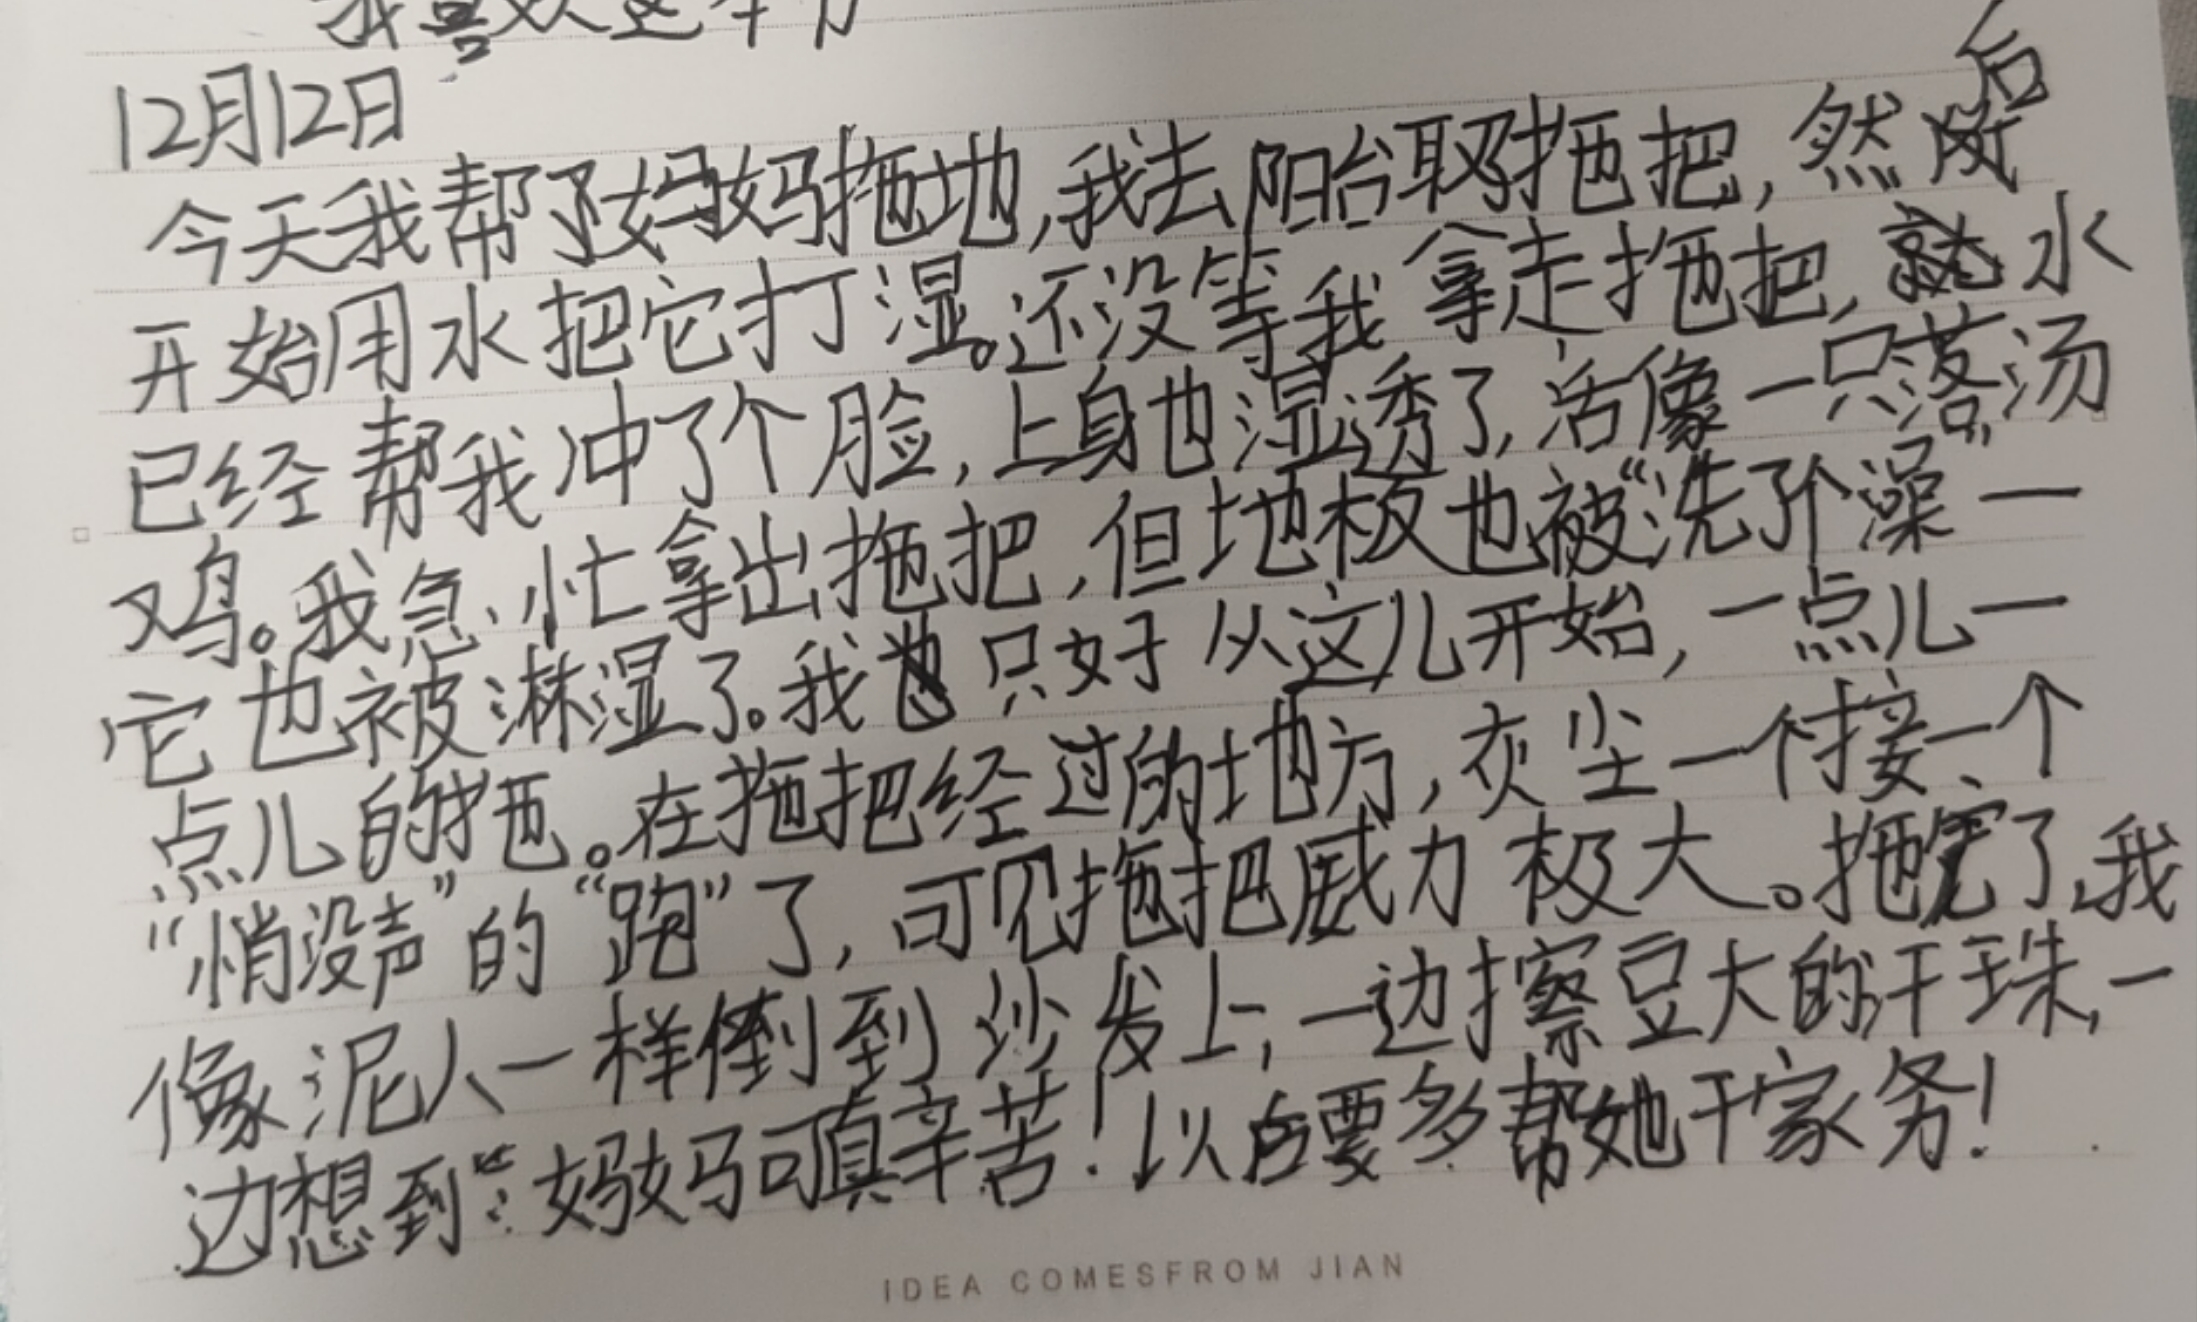 我喜欢这个
12月12日
今天我帮了妈妈拖地,我去阳台取了拖把,然后
开始用水把它打湿。还没等我拿走拖把,水
已经帮我冲了个脸,上身也湿透了,活像一只落汤
鸡。我急忙拿出拖把,但地板也被“洗了个澡一
它也被淋湿了。我只好从这儿开始,一点儿一
点儿的拖。在拖把经过的地方,灰尘一个接一个
“悄没声”的“跑”了,可见拖把威力极大。拖完了,我
像泥人一样倒到沙发上,一边擦豆大的汗珠,一
边想到:“妈妈可真辛苦!以后要多帮她干家务!
IDEA COMESFROM JIAN